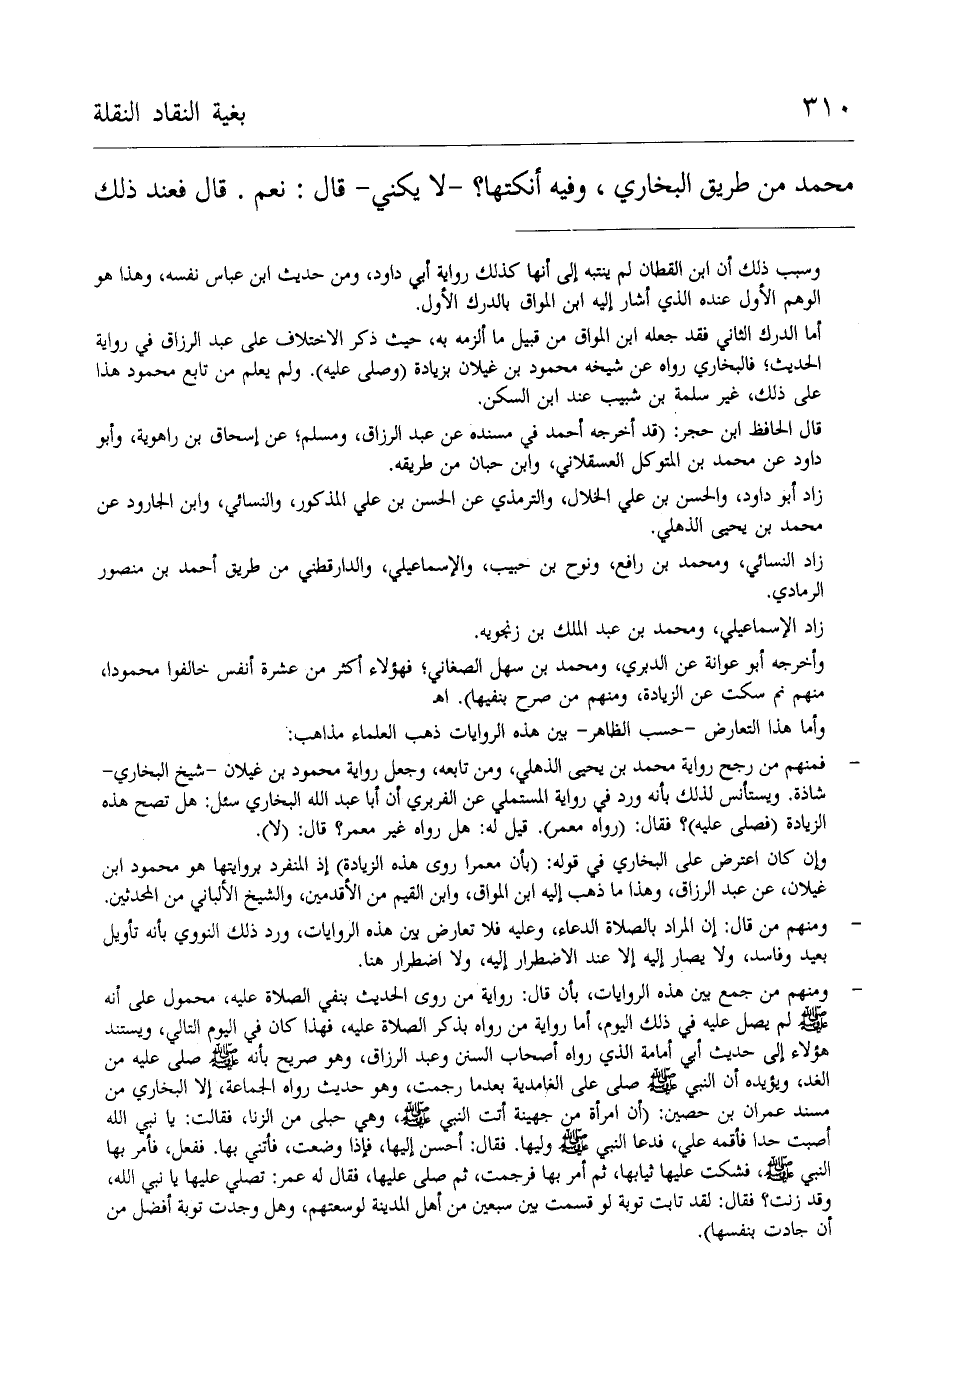 ٣١٠
بغية النقاد النقلة
محمد من طريق البخاري ، وفيه أنكتها؟ -لا يكني- قال : نعم . قال فعند ذلك
وسبب ذلك أن ابن القطان لم ينتبه إلى أنها كذلك رواية أبي داود، ومن حديث ابن عباس نفسه، وهذا هو
الوهم الأول عنده الذي أشار إليه ابن المواق بالدرك الأول.
أما الدرك الثاني فقد جعله ابن المواق من قبيل ما ألزمه به، حيث ذكر الاختلاف على عبد الرزاق في رواية
الحديث؛ فالبخاري رواه عن شيخه محمود بن غيلان بزيادة (وصلى عليه). ولم يعلم من تابع محمود هذا
على ذلك، غير سلمة بن شبيب عند ابن السكن.
قال الحافظ ابن حجر: (قد أخرجه أحمد في مسنده عن عبد الرزاق، ومسلم؛ عن إسحاق بن راهوية، وأبو
داود عن محمد بن المتوكل العسقلاني، وابن حبان من طريقه.
زاد أبو داود، والحسن بن علي الخلال، والترمذي عن الحسن بن علي المذكور، والنسائي، وابن الجارود عن
محمد بن يحيى الذهلي.
زاد النسائي، ومحمد بن رافع، ونوح بن حبيب، والإسماعيلي، والدارقطني من طريق أحمد بن منصور
الرمادي.
زاد الإسماعيلي، ومحمد بن عبد الملك بن زنجويه.
وأخرجه أبو عوانة عن الدبري، ومحمد بن سهل الصغاني؛ فهؤلاء أكثر من عشرة أنفس خالفوا محمودا،
منهم نم سكت عن الزيادة، ومنهم من صرح بنفيها). اهـ
وأما هذا التعارض -حسب الظاهر- بين هذه الروايات ذهب العلماء مذاهب:
- فمنهم من رجح رواية محمد بن يحيى الذهلي، ومن تابعه، وجعل رواية محمود بن غيلان -شيخ البخاري-
شاذة. ويستأنس لذلك بأنه ورد في رواية المستملي عن الفربري أن أبا عبد الله البخاري سئل: هل تصح هذه
الزيادة (فصلى عليه)؟ فقال: (رواه معمر). قيل له: هل رواه غير معمر؟ قال: (لا).
وإن كان اعترض على البخاري في قوله: (بأن معمرا روى هذه الزيادة) إذ المنفرد بروايتها هو محمود ابن
غيلان، عن عبد الرزاق، وهذا ما ذهب إليه ابن المواق، وابن القيم من الأقدمين، والشيخ الألباني من المحدثين.
- ومنهم من قال: إن المراد بالصلاة الدعاء، وعليه فلا تعارض بين هذه الروايات، ورد ذلك النووي بأنه تأويل
بعيد وفاسد، ولا يصار إليه إلا عند الاضطرار إليه، ولا اضطرار هنا.
- ومنهم من جمع بين هذه الروايات، بأن قال: رواية من روى الحديث بنفي الصلاة عليه، محمول على أنه
ﷺ لم يصل عليه في ذلك اليوم، أما رواية من رواه بذكر الصلاة عليه، فهذا كان في اليوم التالي، ويستند
هؤلاء إلى حديث أبي أمامة الذي رواه أصحاب السنن وعبد الرزاق، وهو صريح بأنه ﷺ صلى عليه من
الغد، ويؤيده أن النبي ﷺ صلى على الغامدية بعدما رجمت، وهو حديث رواه الجماعة، إلا البخاري من
مسند عمران بن حصين: (أن امرأة من جهينة أتت النبي ﷺ، وهي حبلى من الزنا، فقالت: يا نبي الله
أصبت حدا فأقمه علي، فدعا النبي ﷺ وليها. فقال: أحسن إليها، فإذا وضعت، فأتني بها. ففعل، فأمر بها
النبي ﷺ، فشكت عليها ثيابها، ثم أمر بها فرجمت، ثم صلى عليها، فقال له عمر: تصلي عليها يا نبي الله،
وقد زنت؟ فقال: لقد تابت توبة لو قسمت بين سبعين من أهل المدينة لوسعتهم، وهل وجدت توبة أفضل من
أن جادت بنفسها).